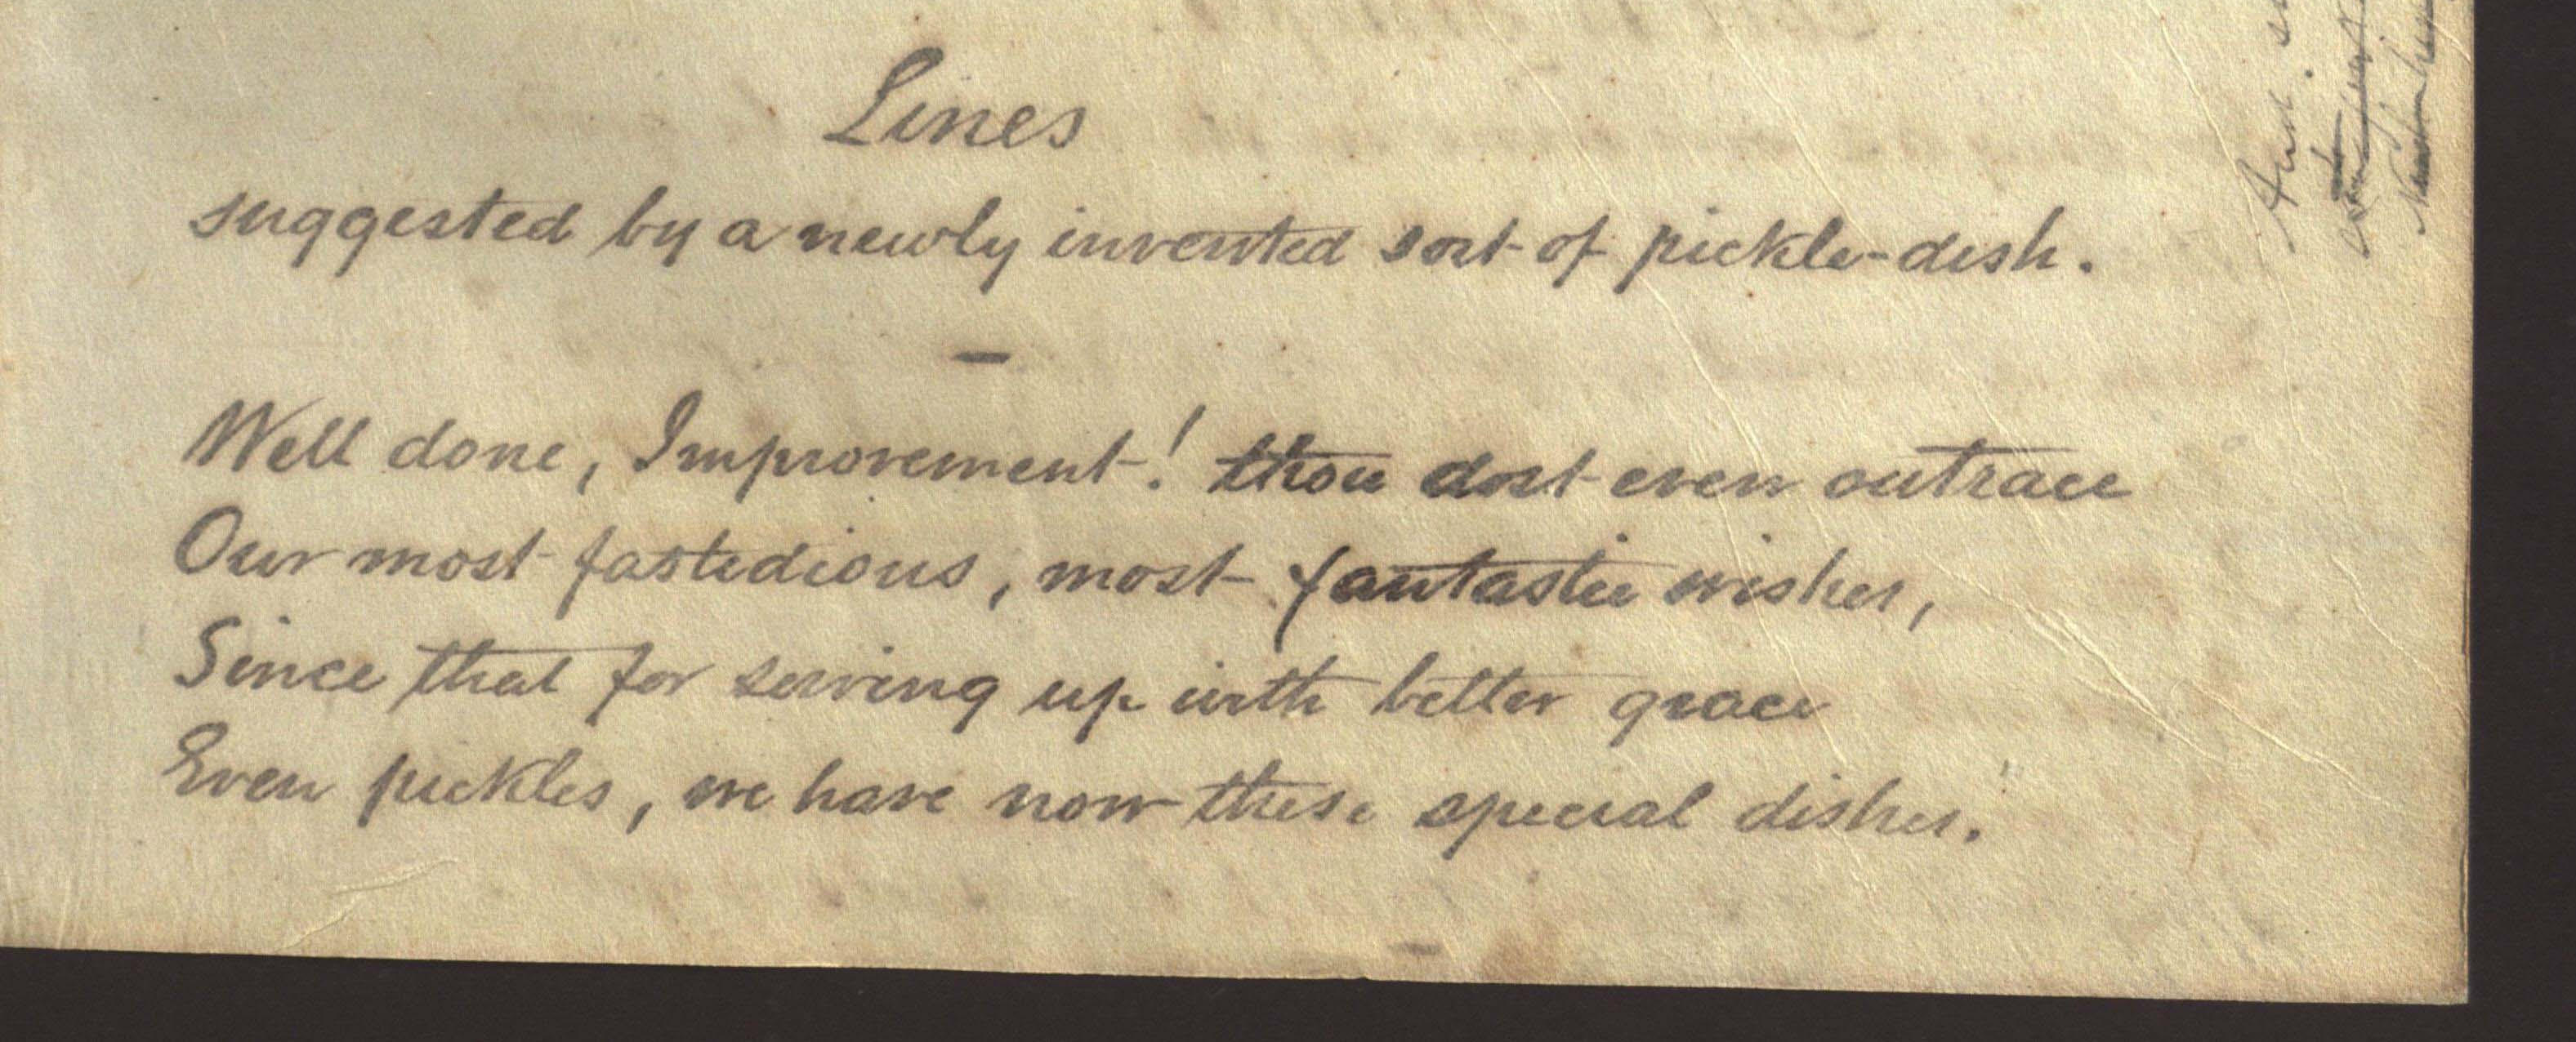 Lines
suggested by a newly invented sort of pickle-dish.
Well done, Improvement! thou dost even outrace
Our most fastidious, most fantastic wishes,
Since that for serving up with better grace
Even pickles, we have now these special dishes.